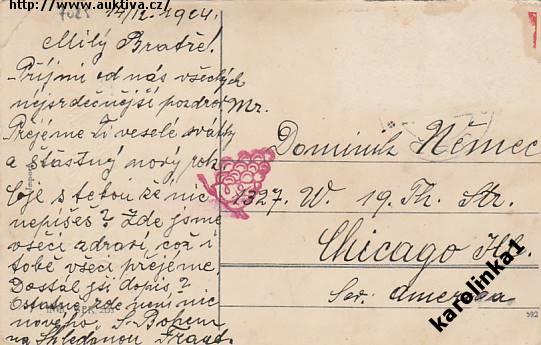 http://www.auktiva.cz/
14/12. 1924.
Milý Bratře!
Příjmi od nás všech
nejsrdečnější pozdrav
Přejeme Ti veselé svátky
a šťastný nový rok
Co je s tebou že nic
nepíšeš? Zde jsme
všeci zdraví, což i
tobě všeci přejeme.
Dostal jsi dopis?
Ostatně zde není nic
nového. S Bohem
na Shledanou
Mr.
Dominik Němec
1327. W. 19. Th. Str.
Chicago Ill.
Sev. Amerika
992
karolinka1